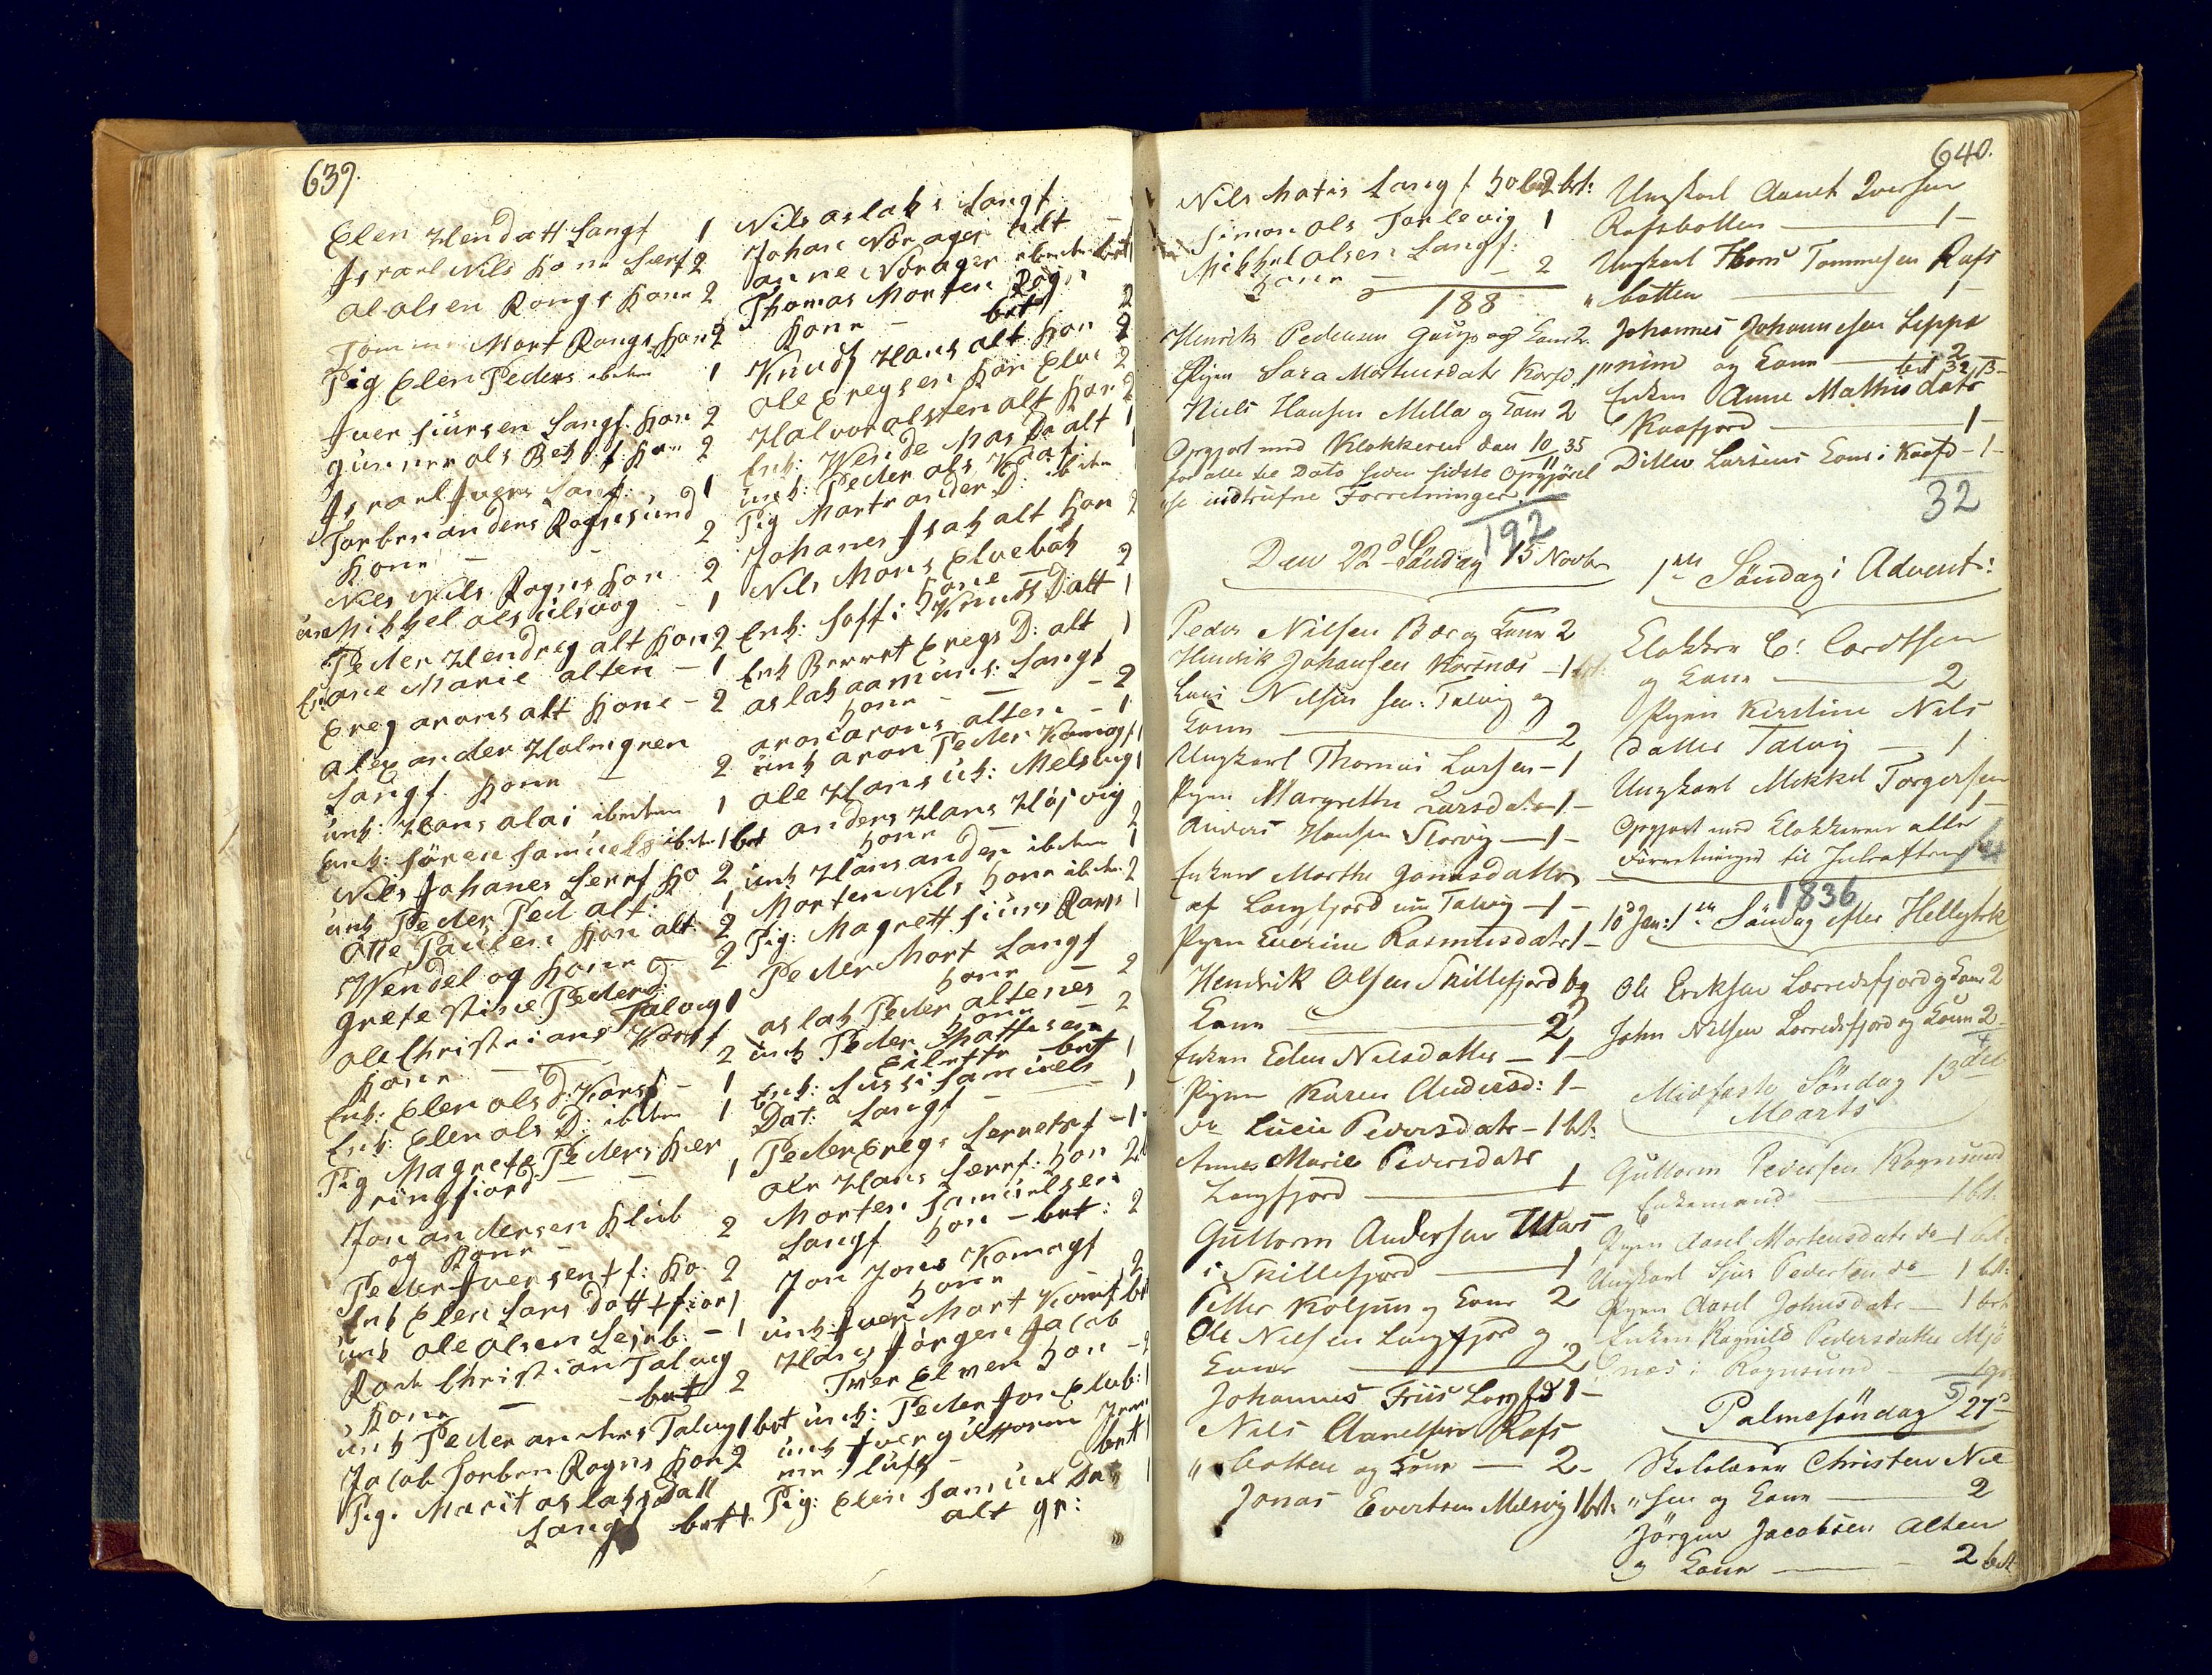 639.
Elen Hendatt Langf 1
Israel Nils Kone Lerf 2
Ol olsen Rongs Kone 2
Mort Rongs Kon 2
Pig Elen Peders ibidem 1
Iver Siursen Langf. Kon 2
Gunner ols f. Kon 2
Israel Ivers Lanf: 1
Torben anders Rognsund
Kone - 2
Nils Nils Rogns Kon 2
unk Mikkel ols ulsvog - 1
Peder Hendreg alt Kon 2
Enk ane Marie alten - 1
Ereg arons alt Kone - 2
Alexander Holmgren
Langf. Kone - 2
unk: Hans alai ibidem 1
unk: Søren Samuels ibidem 1 bet
Nils Johanes Lerrf Ko 2
unk Peder Ped alt: 1
Otte Paulsen Kon alt: 2
Wendel og Kone - 2
Grete Stine Pederd:
Talvig 1
Ole Christians Korsf
Kone - 2
Enk: Elen ols D: Korsf - 1
Enk: Elen ols D: ibidem 1
Pig Magrete Peders Kier
ringfiord - - 1
Jon andersen Klub
og Kone - 2
Peder Iversen f: Ko 2
Enk Elen Lars datt fior 1
unk Ole Olsen Lejrb: - 1
Rock Christian Talvig
Kone - bet 2
unk Peder anders Talvig 1 bet
Jacob Torben Rogns Kon 2
Pig. Marit aslaks Datt
Langf bett
Nils aslaks Langf
Johan Norager alt -
anne Norager ibidem bet 1
Thomas Morten Rogn
Kone - bet 2
Knudt Hans alt Kon 2
Ole Eregsen Kon Elve 2
Halvor olsten alt Kon 2
Enk: Wende Mas Da alt 1
unk: Peder ols Kaaf: 1
Pig Marte ander D: ibidem
Johanes Isak alt Kon 2
Nils Mons Elvebak
Kone - 2
Enk: Soffi Knuds Datt 1
Enk Berret Eregs D: alt 1
aslak aamuns: Langf
Kone - - 2
aron arons alten - 1
unk aron Peder Komagf 1
Ole Hans uk: Melsvig 1
anders Hans Højvig
Kone - 2
unk Hans ander ibidem 1
Morten Nils Kone ibidem 2
Pig: Magrett Siurs Ravns 1
Peder Mort Langf
Kone 2
aslak Peder altenes
Kone 2
unk Peder Mathisen
bet 1
Enk: Sussi Samuels
Dat: Langf - 1
Peder Eregs Lerretsf - 1
Ole Hans Lerrf: Kon 2
Morten Samuelsen
Langf Kon - bet: 2
Jon Jons Komagf
Kone 2
unk: Iver Mort Komf bt
Hans Jørgen Jacob
Iver Elven Kon - 2
unk: Peder Jon Elvb: 1
unk Iver guttorm
bet
Pig: Elen Samuel Dat 1
alt gr:
640.
Nils Matis Langf. Ko 2 bet:
Simon Ols Torlevig 1
Mikkel Olsen Langf:
Kone - - 2
188
Henrik Pedersen Gaup og Kone 2.
Pigen Sara Mortensdatr Korsfd. 1
Niels Hansen Mella og Kone 2
Opgjort med Klokkeren den 10/11 35
for alle til Dato siden sidste Opgjørel
"se indtrufne Forretninger.
192
Den 22d Søndag 15 Novbr
Peder Nilsen Bær og Kone 2
Hendrik Johansen Korsnæs - 1 bet:
Lars Nilsen sen: Talvig og
Kone 2
Ungkarl Thomas Larsen - 1
Pigen Margrethe Larsdatr - 1 -
Anders Hansen Storvig - 1 -
Enken Marthe Jonasdatter
af Langfjord nu Talvig - 1 -
Pigen Everine Rasmusdatr 1 -
Hendrik Olsen Skillefjord og
Kone 2
Enken Elen Nilsdatter - 1 -
Pigen Karen Andersd: 1 -
do Lucie Pedersdatr - 1 bt.
Annes Marie Pedersdatr
Langfjord 1
Guttorm Andersen Utvær
i Skillefjord 1
Petter Koljun og Kone 2
Ole Nielsen Langfjord og
Kone 2
Johannes Friis Langfd 1 -
Nils Anselsen Rafs
" botten og Kone - 2 -
Jonas Evertsen Melsvig 1 bt.
Ungkarl Anret Iversen
Rafsbotten 1 -
Ungkarl Hans Tommesen Rafs
" botten 1 -
Johannes Johannesen Leppe
" nime og Kone 2
bet 32 ß -
Enken Anne Mathisdatr
Kaafjord 1 -
Ditlev Larsens Kone i Kaafd - 1 -
32
1ste Søndag i Advent:
Klokker C: Cordtsen
og Kone 2
Pigen Kirstine Nils
datter Talvig - 1
Ungkarl Mikkel Torgersen
1 -
Opgjort med Klokkeren alle
Forretninger til Juleaften
1836
10d Jan: 1ste Søndag efter Hellig 3 K
Ole Eriksen Lerredsfjord og Kone 2
John Nilsen Lerredsfjord og Kone 2
4
Midfaste Søndag 13de
Marts
Guttorm Pedersen Rognsund
Enkemand 1 bt.
Pigen Aasel Mortensdatr do - 1 bt.
Ungkarl Sjur Pedersen do - 1 bt.
Pigen Aasel Johnsdatr - 1 bet
Enken Ragnild Pedersdatter Mjø
snæs i Rognsund 1 gr
5
Palmesøndag 27d
Skolelærer Christen Niel
" sen og Kone 2
Jørgen Jacobsen Alten
og Kone 2 bet